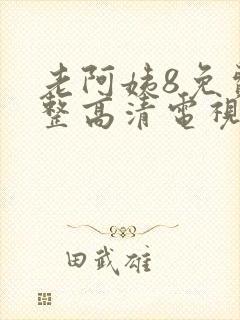 老阿姨8免
整高清電視
田武雄